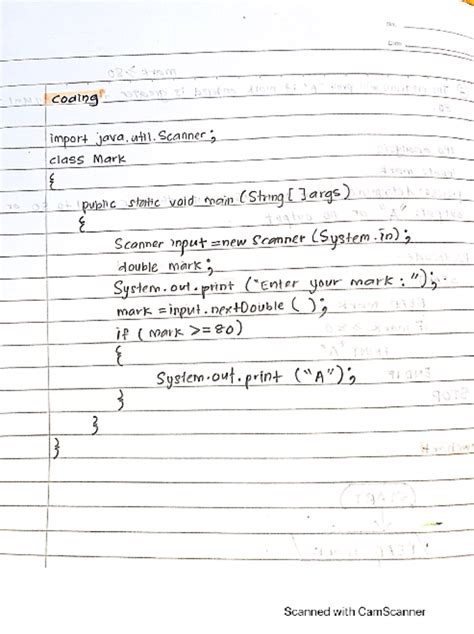 No.
Date
Coding
import java.util.Scanner;
class Mark
{
public static void main (String [ ] args)
{
Scanner input = new Scanner (System.in);
double mark;
System.out.print ("Enter your mark : ");
mark = input.nextDouble ( );
if ( mark >= 80)
{
System.out.print ("A");
}
}
}
Scanned with CamScanner